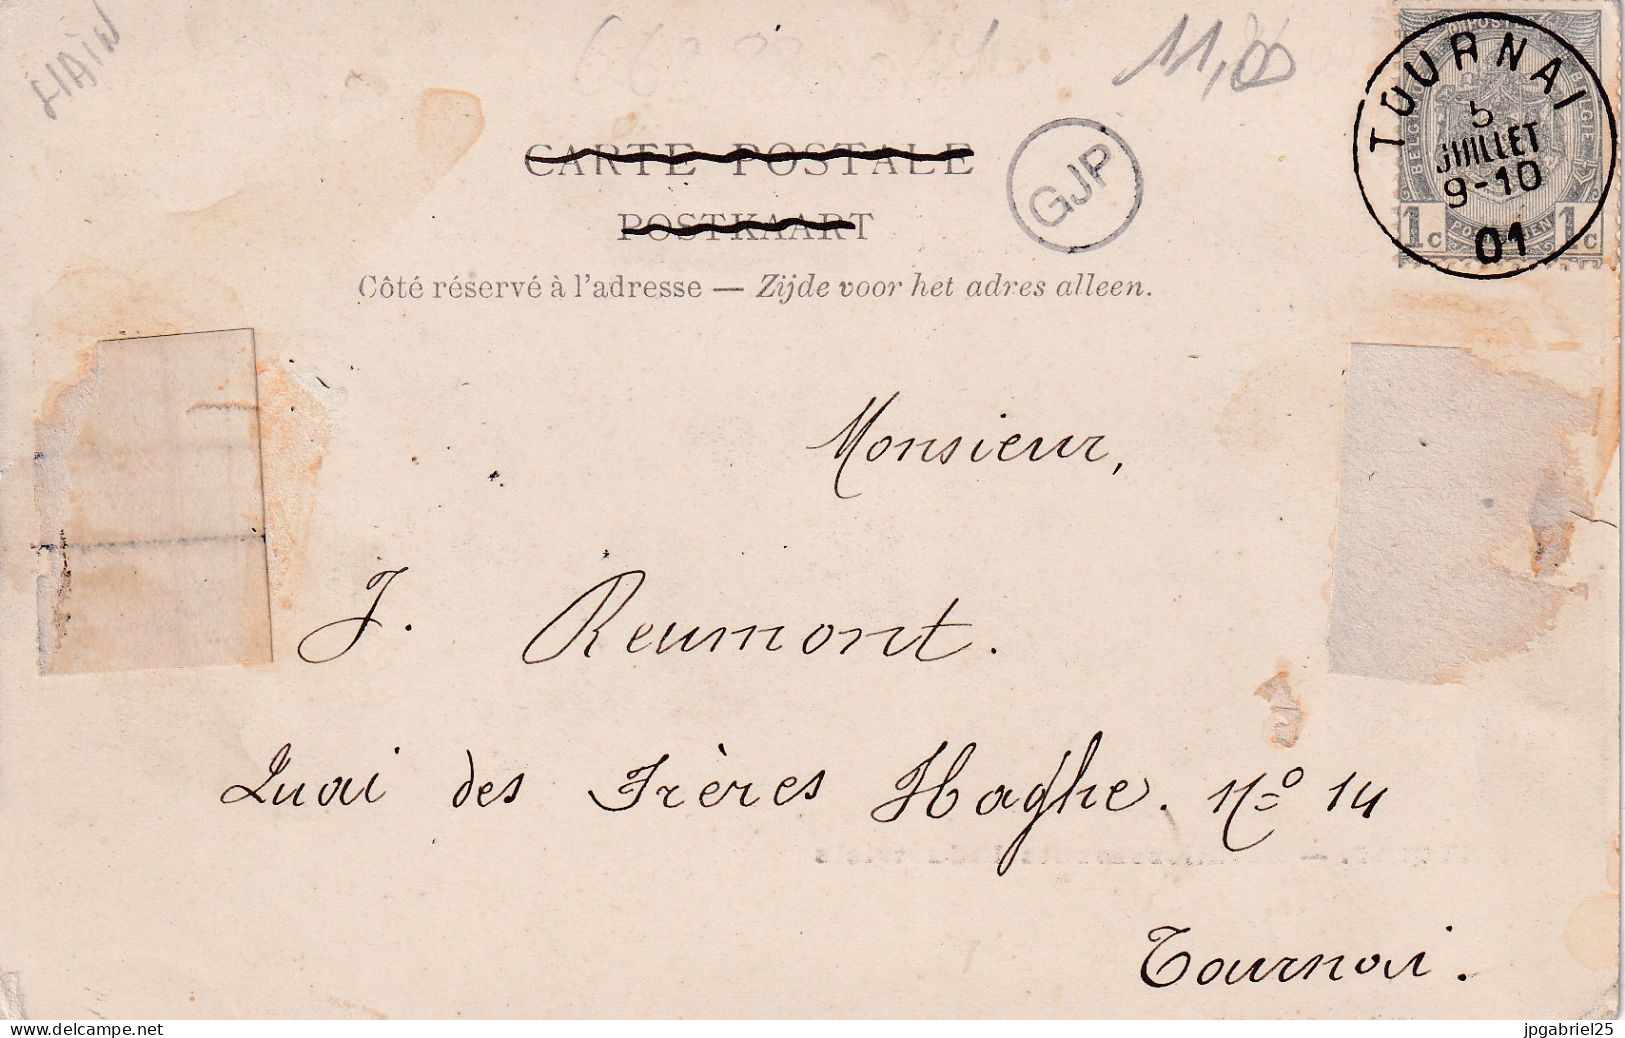 HAIN
11,00
CARTE POSTALE
POSTKAART
GJP
TOURNAI
5
JUILLET
9-10
01
1c 1c
Côté réservé à l'adresse — Zijde voor het adres alleen.
Monsieur,
J. Reumont.
Quai des Frères Haghe. No 14
Tournai.
jpgabriel25